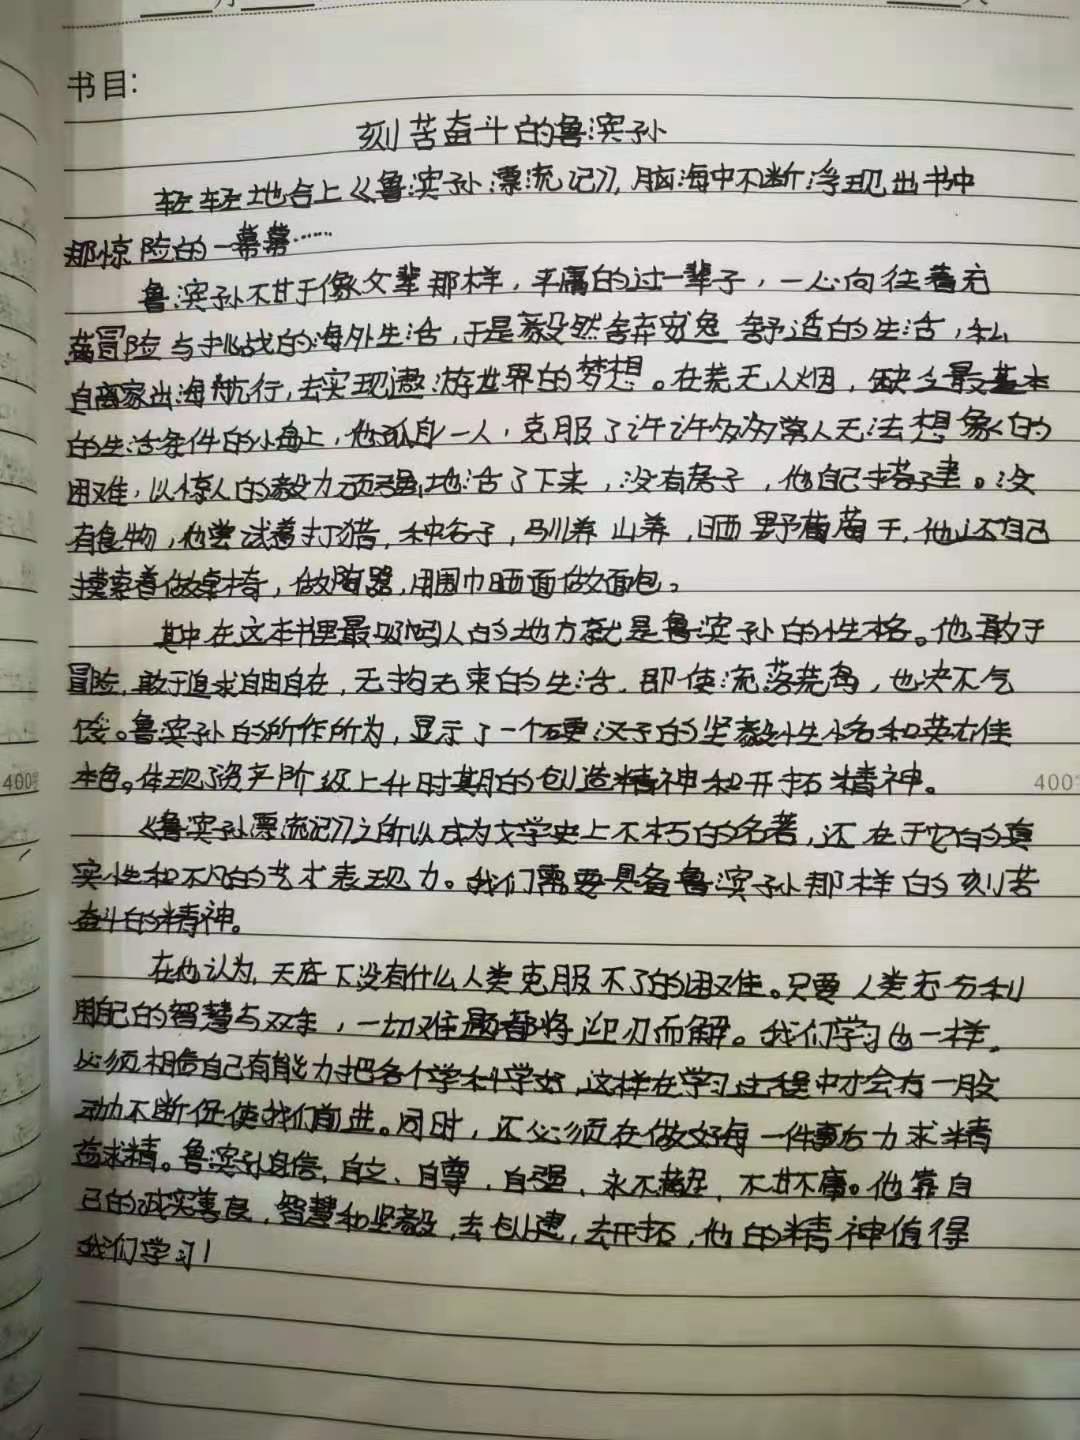 月
书目:
刻苦奋斗的鲁滨孙
轻轻地合上《鲁滨孙漂流记》,脑海中不断浮现出书中
那惊险的一幕幕……
鲁滨孙不甘于像父辈那样,平庸的过一辈子,一心向往着充
满冒险与挑战的海外生活,于是毅然舍弃安逸舒适的生活,私
自离家出海航行,去实现遨游世界的梦想。在荒无人烟,缺乏最基本
的生活条件的小岛上,他孤身一人,克服了许许多多常人无法想象的
困难,以惊人的毅力顽强地活了下来,没有房子,他自己搭建。没
有食物,他尝试着打猎,种谷子,驯养山养,晒野葡萄干,他还自己
摸索着做桌椅,做陶器,用围巾晒面做面包。
其中在这本书里最吸引人的地方就是鲁滨孙的性格。他敢于
冒险,敢于追求自由自在,无拘无束的生活,即使流落荒岛,也决不气
馁。鲁滨孙的所作所为,显示了一个硬汉子的坚毅性格和英雄
本色。体现了资产阶级上升时期的创造精神和开拓精神。
400
《鲁滨孙漂流记》之所以成为文学史上不朽的名著,还在于它的真
实性和不凡的艺术表现力。我们需要具备鲁滨孙那样的刻苦
奋斗的精神。
在他认为,天底下没有什么人类克服不了的困难。只要人类充分利
用自己的智慧与双手,一切难题都将迎刃而解。我们学习也一样,
必须相信自己有能力把各个学科学好,这样在学习过程中才会有一股
动力不断促使我们前进。同时,还必须在做好每一件事后力求精
益求精。鲁滨孙自信,自立、自尊,自强,永不满足,不甘平庸。他靠自
己的诚实善良,智慧和坚毅,去创建,去开拓,他的精神值得
我们学习!